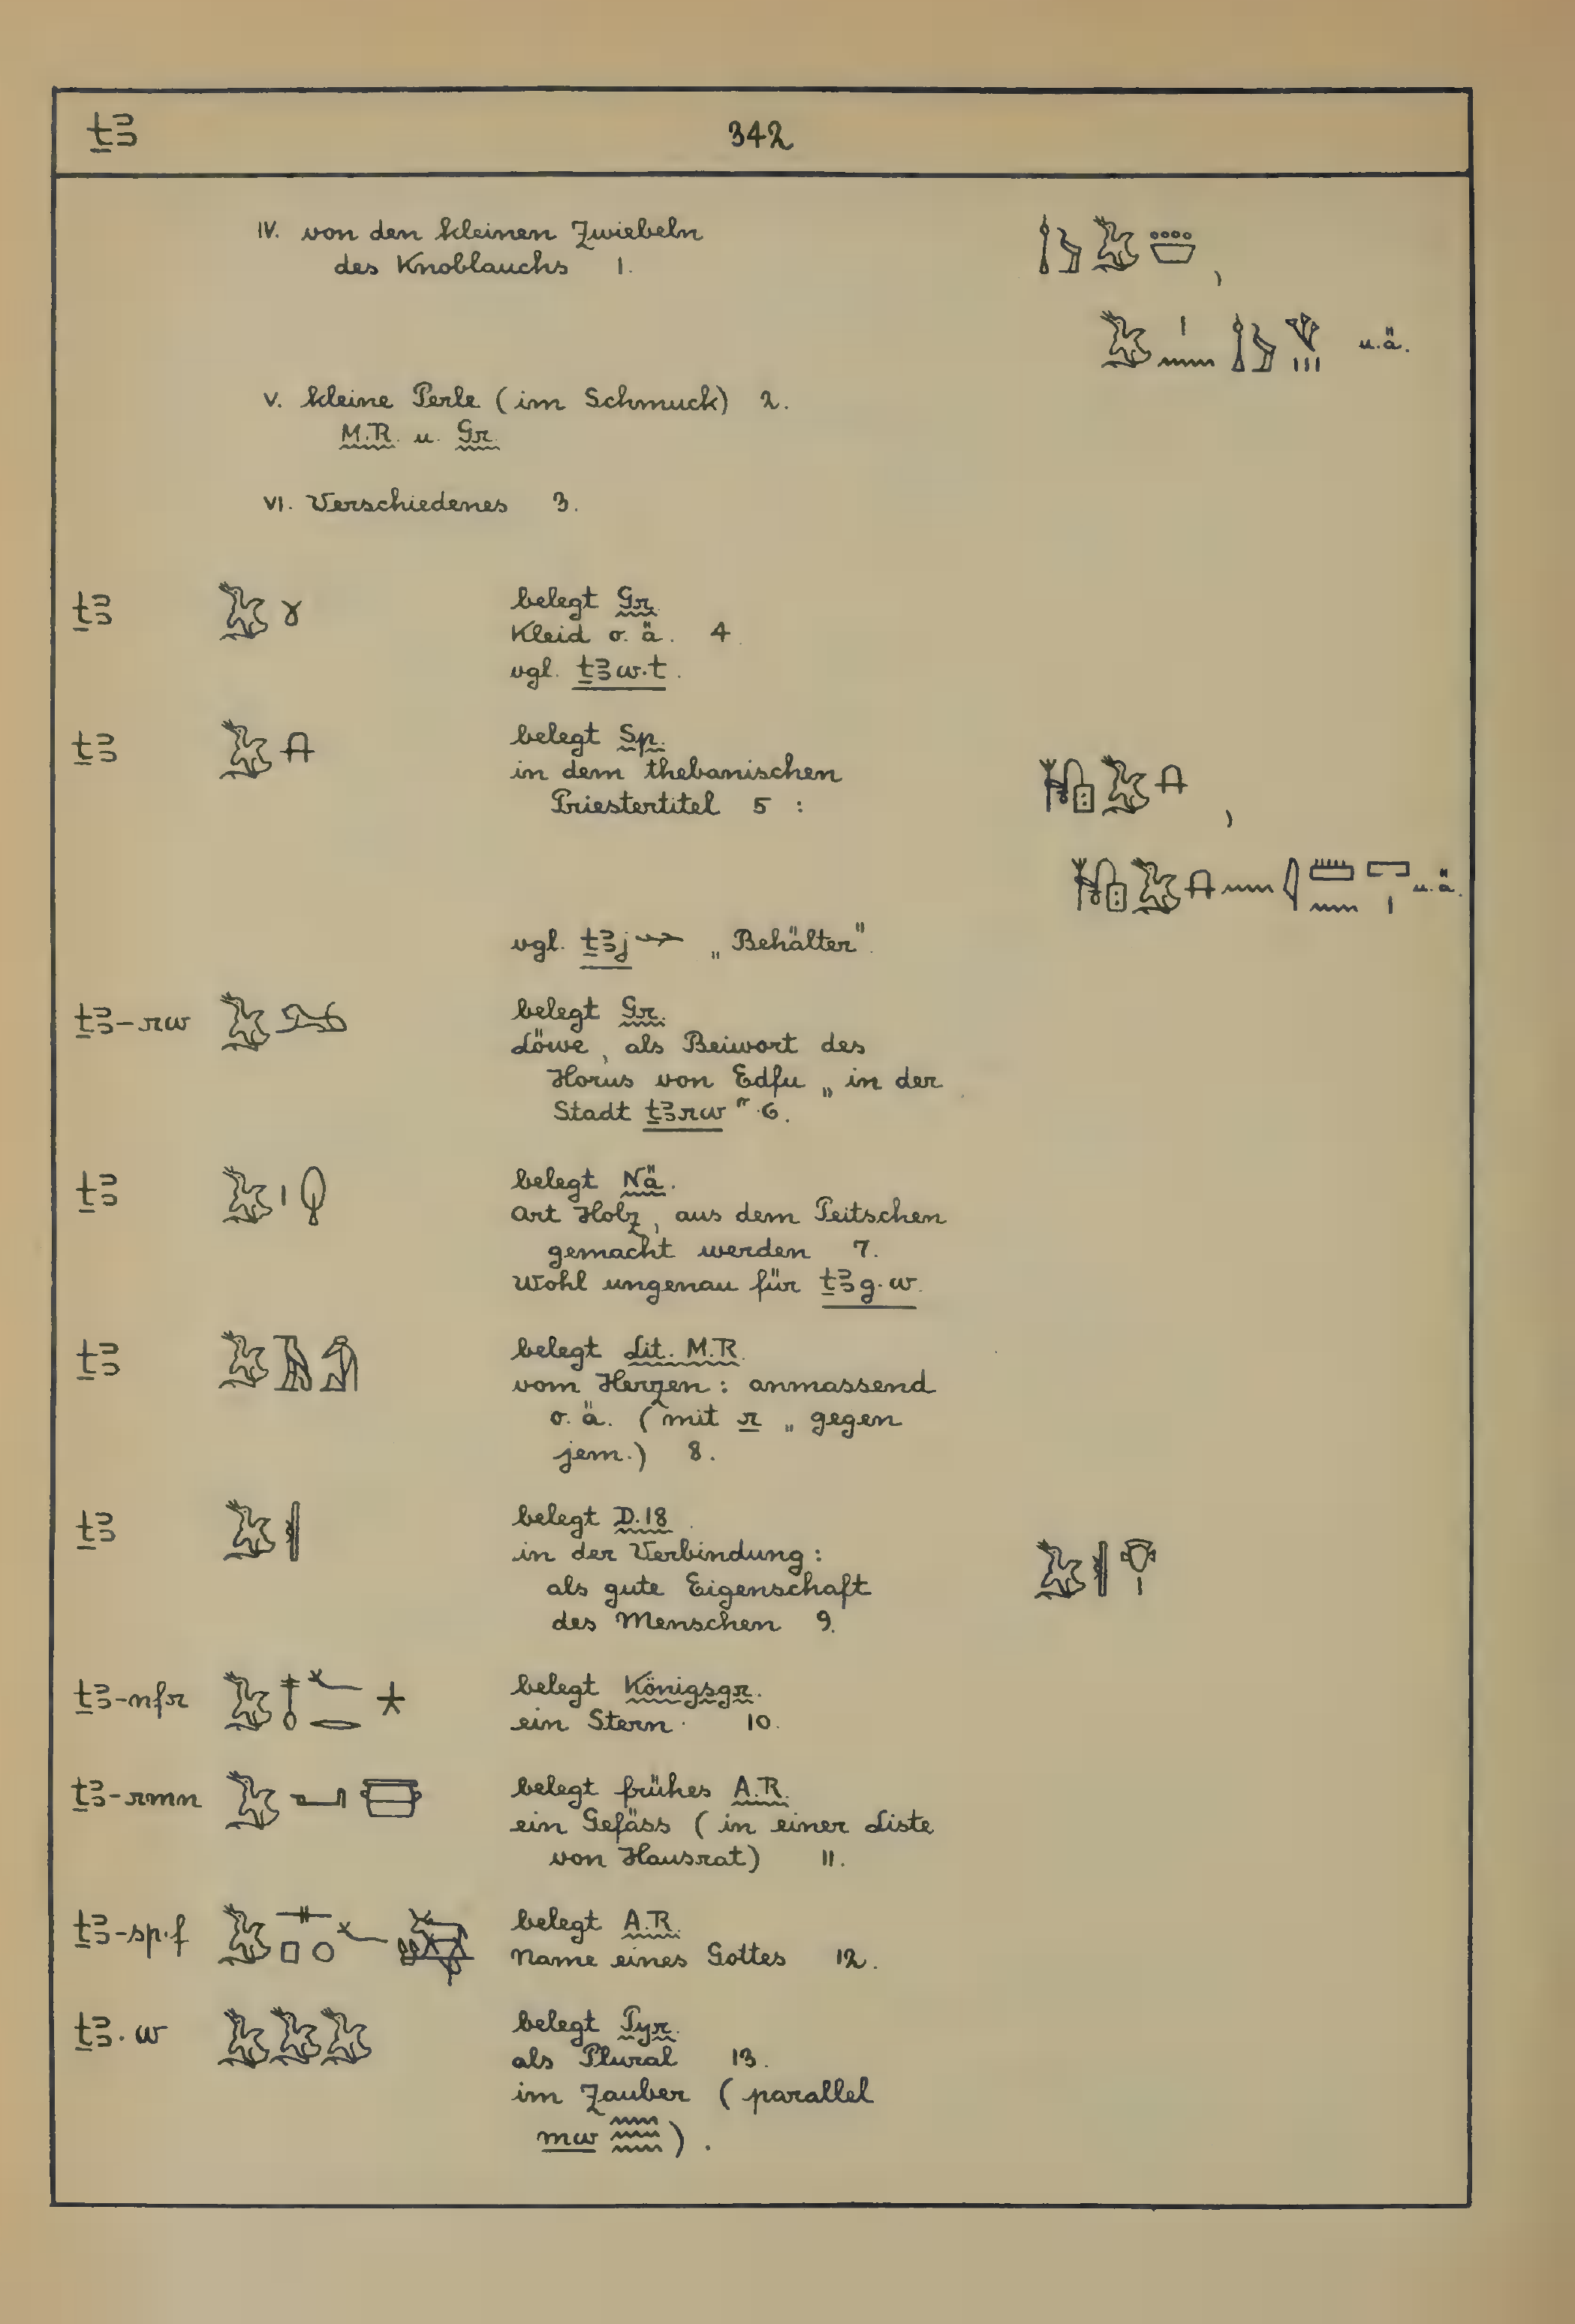 ṯꜣ 342
IV. von den kleinen Zwiebeln
des Knoblauchs 1.
,
u.ä.
V. kleine Perle (im Schmuck) 2.
M.R. u. Gr.
VI. Verschiedenes 3.
ṯꜣ belegt Gr.
Kleid o. ä. 4.
vgl. ṯꜣw·t.
ṯꜣ belegt Sp.
in dem thebanischen
Priestertitel 5 :
,
u.ä.
vgl. ṯꜣj „Behälter".
ṯꜣ-rw belegt Gr.
Löwe, als Beiwort des
Horus von Edfu „in der
Stadt ṯꜣrw" 6.
ṯꜣ belegt Nä.
Art Holz, aus dem Peitschen
gemacht werden 7.
Wohl ungenau für ṯꜣg·w.
ṯꜣ belegt Lit. M.R.
vom Herzen: anmassend
o. ä. (mit r „gegen
jem.) 8.
ṯꜣ belegt D.18.
in der Verbindung:
als gute Eigenschaft
des Menschen 9.
ṯꜣ-nfr belegt Königsgr.
ein Stern. 10.
ṯꜣ-rmn belegt frühes A.R.
ein Gefäss (in einer Liste
von Hausrat) 11.
ṯꜣ-sp·f belegt A.R.
Name eines Gottes 12.
ṯꜣ·w 𓅷𓅷𓅷 belegt Pyr.
als Plural 13.
im Zauber (parallel
mw 𓈗).